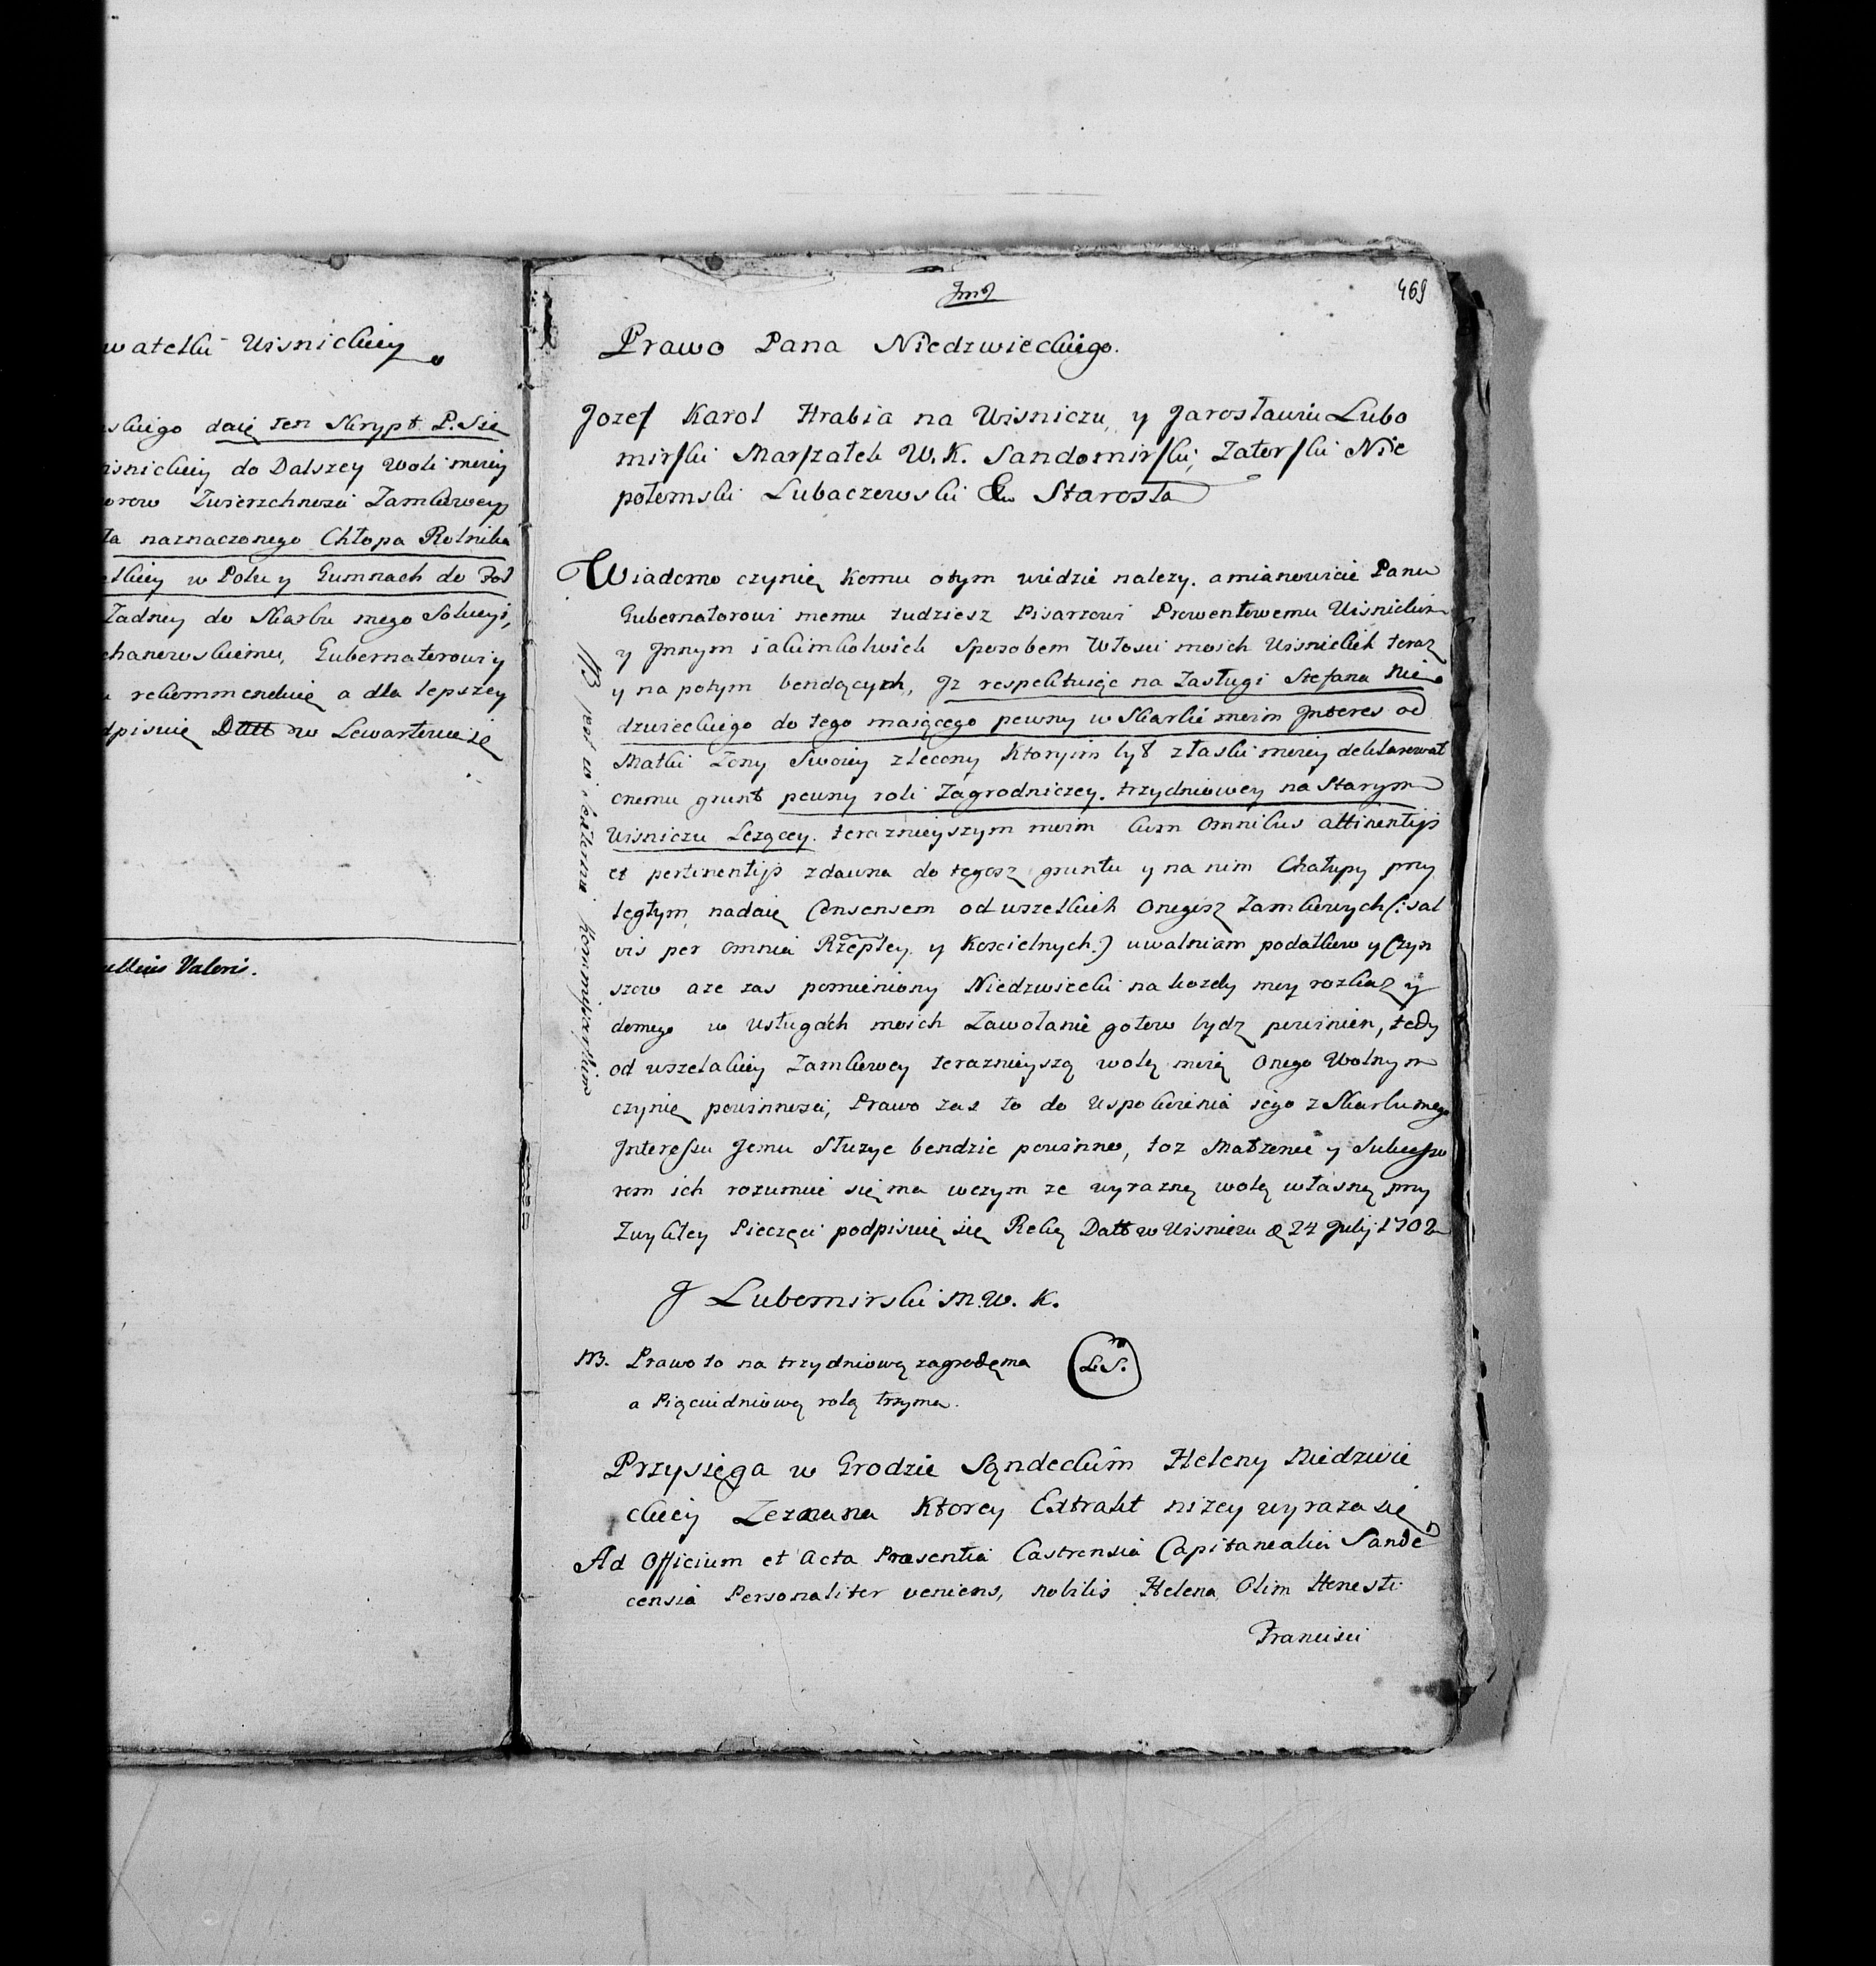 watelki Wisnickiey
skiego daię ten Skrypt P. Sie
isnickiey do Dalszey woli moiey
orow Zwierzchnosci Zamkowey
ta naznaczonego Chłopa Rolnika
elkiey w Polu y Gumnach do Pod
Zadney do Skarbu mego Solucyi,
chanowskiemu, Gubernatorowi y
rekommenduię a dla lepszey
dpisuię Datt w Lewartowie
Valoris.
469
Jmć
Prawo Pana Niedzwieckiego.
Jozef Karol Hrabia na Wisniczu, y Jarosławiu Lubo
mirski Marszałek W. K. Sandomirski, Zatorski Nie
połomski Lubaczewski &c Starosta
Wiadomo czynię komu otym widzie nalezy. amianowicie Panu
Gubernatorowi memu tudziesz Pisarzowi Prowentowemu Wisnickim
y Jnnym iakimkolwiek sposobem Włosci moich Wisnickich teraz
y na potym bendących, Jz respektuiąc na Zasługi Stefana Nie
dzwieckiego do tego maiącego pewny w Skarbie moim Jnteres od
Matki Zony Swoiey zlecony Ktorym był z łaski moiey deklarował
onemu grunt pewny roli Zagrodniczey. trzydniowey na Starym
Wisniczu Lezącey. teraznieyszym moim cum omnibus attinentijs
et pertinentijs zdawna do tegosz gruntu y na nim Chałupy przy
ległym nadaię Consensem od wszelkich onegosz Zamkowych (: sal
vis per omnia Rzeptey. y Koscielnych.) uwalniam podatkow y Czyn
szow aze zas pomieniony Niedzwiecki na kozdy moy rozkaz y
domego w usługach moich Zawołanie gotow bydz powinien, tedy
od wszelakiey Zamkowey teraznieyszą wolą moią onego Wolnym
czynię powinnosci, Prawo zas to do Uspokoienia iego z Skarbu mego
Jnteressu Jemu Słuzyc bendzie powinno, toz Małzonce y Sukcesso
rom ich rozumiec się ma wczym ze wyrazną wolą własną przy
Zwykłey Pieczęci podpisuię się Ręką Datt w Wisniczu D 24 Julij 1702
NB jest w
J Lubomirski M. W. K.
NB. Prawo to na trzydniową zagrodę ma
L.S.
a Pięciudniową rolą trzyma.
Przysięga w Grodzie Sąndeckim Heleny Niedzwie
ckiey Zeznana Ktorey Extrakt nizey wyraza się
Ad Officium et Acta Præsentia Castrensia Capitanealia Sande
censia Personaliter veniens, Nobilis Helena, Olim Honesti
Francisci